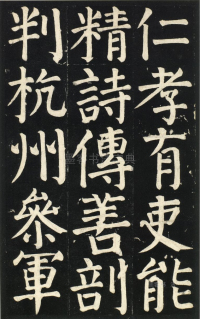 仁孝有吏能
精詩傳善剖
判杭州叅軍